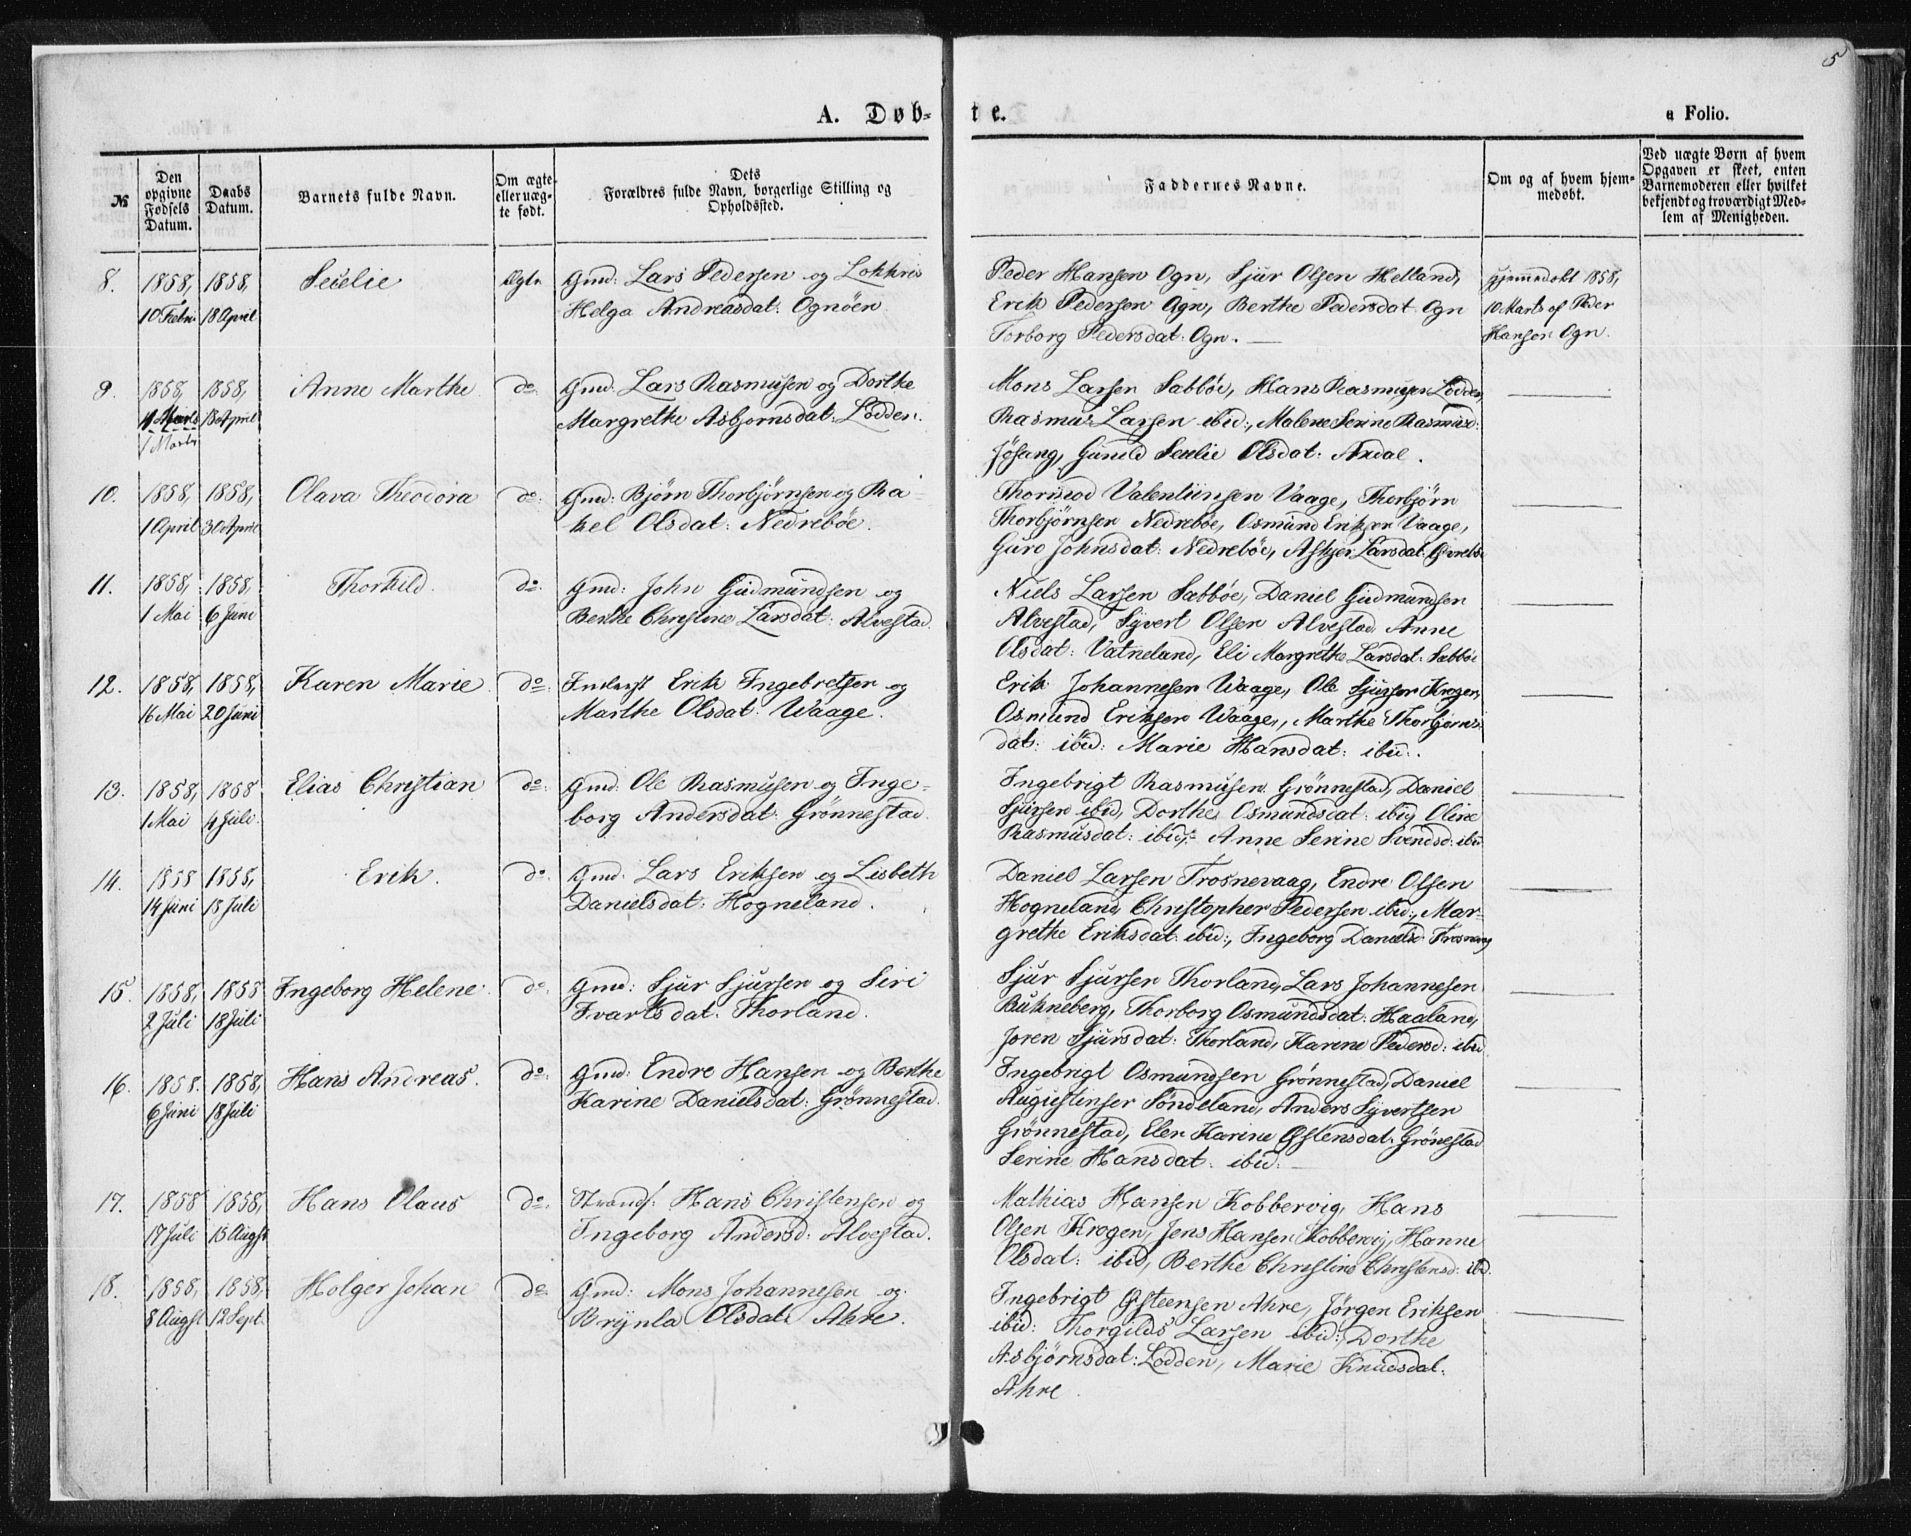 5
A. Døb- te.
a Folio.
№ | Den opgivne Fødsels Datum. | Daabs Datum. | Barnets fulde Navn. | Om ægte eller uægte født. | Dets Forældres fulde Navn, borgerlige Stilling og Opholdssted. | Faddernes Navne. | Om og af hvem hjemmedøbt. | Ved uægte Børn af hvem Opgaven er skeet, enten Barnemoderen eller hvilket bekjendt og troværdigt Medlem af Menigheden.
8. 1858, 1858, Secelie Ægte Gmd: Lars Pedersen og
10 Febr 18 April Helga Andreasdat: Ognøen
Peder Hansen Ogn, Sjur Olsen Helland,
Erik Pedersen Ogn, Berthe Pedersdat Ogn
Torborg Pedersdat: Ogn.
Hjemmedøbt 1858,
10 Marts af Peder
Hansen Ogn.
9. 1858, 1858, Anne Marthe do Gmd: Lars Rasmusen og Dorthe
13 April Margrethe Asbjørnsdat: Lodden.
1 Marts
Mons Larsen Sæbbøe, Hans Rasmusen Lodden,
Rasmus Larsen ibid:, Malene Serine Rasmusd:
Jøsang, Gunild Secelie Olsdat: Aadal.
10. 1858, 1858, Olava Theodora do: Gmd: Bjørn Thorbjørnsen og Ra-
1 April 30 April kel Olsdat: Nedrebøe.
Thormod Valentinsen Vaage, Thorbjørn
Thorbjørnsen Nedrebøe, Osmund Eriksen Vaage,
Guro Johnsdat: Nedrebøe, Larsdat:
11. 1858, 1858, Thorkild. do. Gmd: John Gudmundsen og
1 Mai 6 Juni Berthe Christine Larsdat: Alvestad.
Niels Larsen Sæbbøe, Daniel Gudmundsen
Alvestad, Syvert Olsen Alvestad Anne
Olsdat: Vatneland, Eli Margrethe Larsdat: Sæbbøe
12. 1858, 1858, Karen Marie do: Inderst Erik Ingebretsen og
16 Mai 20 Juni Marthe Olsdat: Waage.
Erik Johannesen Waage, Ole Sjursen Krogen,
Osmund Eriksen Waage, Marthe Thorbjørns-
dat: ibid: Marie Hansdat: ibid:.
13. 1858, 1858 Elias Christian do: Gmd: Ole Rasmusen og Inge-
1 Mai 4 Juli. borg Andersdat: Grønnestad.
Ingebrigt Rasmusen Grønnestad, Daniel
Sjursen ibid, Dorthe Osmundsdat: ibid, Oline
Rasmusdat: ibid, Anne Serine Svendsd: ibid
14. 1858 1858, Erik. do. Gmd: Lars Eriksen og Lisbeth
14 Juni 18 Juli Danielsdat: Hogneland.
Daniel Larsen Trosnevaag, Endre Olsen
Hogneland, Christopher Pedersen ibid:, Mar-
grethe Eriksdat: ibid:, Ingeborg Danielsd:
15. 1858, 1858 Ingeborg Helene do. Gmd: Sjur Sjursen og Siri
2 Juli 18 Juli Ivartsdat: Thorland.
Sjur Sjursen Thorland, Lars Johannesen
Bukneberg, Thorborg Osmundsdat: Haaland,
Joren Sjursdat: Thorland, Karine Pedersd: ibid
16. 1858. 1858, Hans Andreas. do. Gmd: Endre Hansen og Berthe
6 Juni 18 Juli Karine Danielsdat: Grønnestad.
Ingebrigt Osmundsen Grønnestad, Daniel
Augustenser Søndeland, Anders Syvertsen
Grønnestad, Elen Karine Østensdat: Grønestad
Serine Hansdat: ibid:
17. 1858 1858, Hans Olaus do. Strands: Hans Christensen og
17 Juli 15 Augst Ingeborg Andersd: Alvestad.
Mathias Hansen Kobbervig, Hans
Olsen Krogen, Jens Hansen Kobbervig, Hanne
Olsdat: ibid, Berthe Christine Christensd: ibd.
18. 1858, 1858, Holger Johan do: Gmd: Mons Johannesen og
8 Augst 12 Sept. Brynla Olsdat: Ahre.
Ingebrigt Østeensen Ahre, Jørgen Eriksen
ibid: Thorgilds Larsen ibid:, Dorthe
Asbjørnsdat: Lodden, Marie Knudsdat:
Ahre.